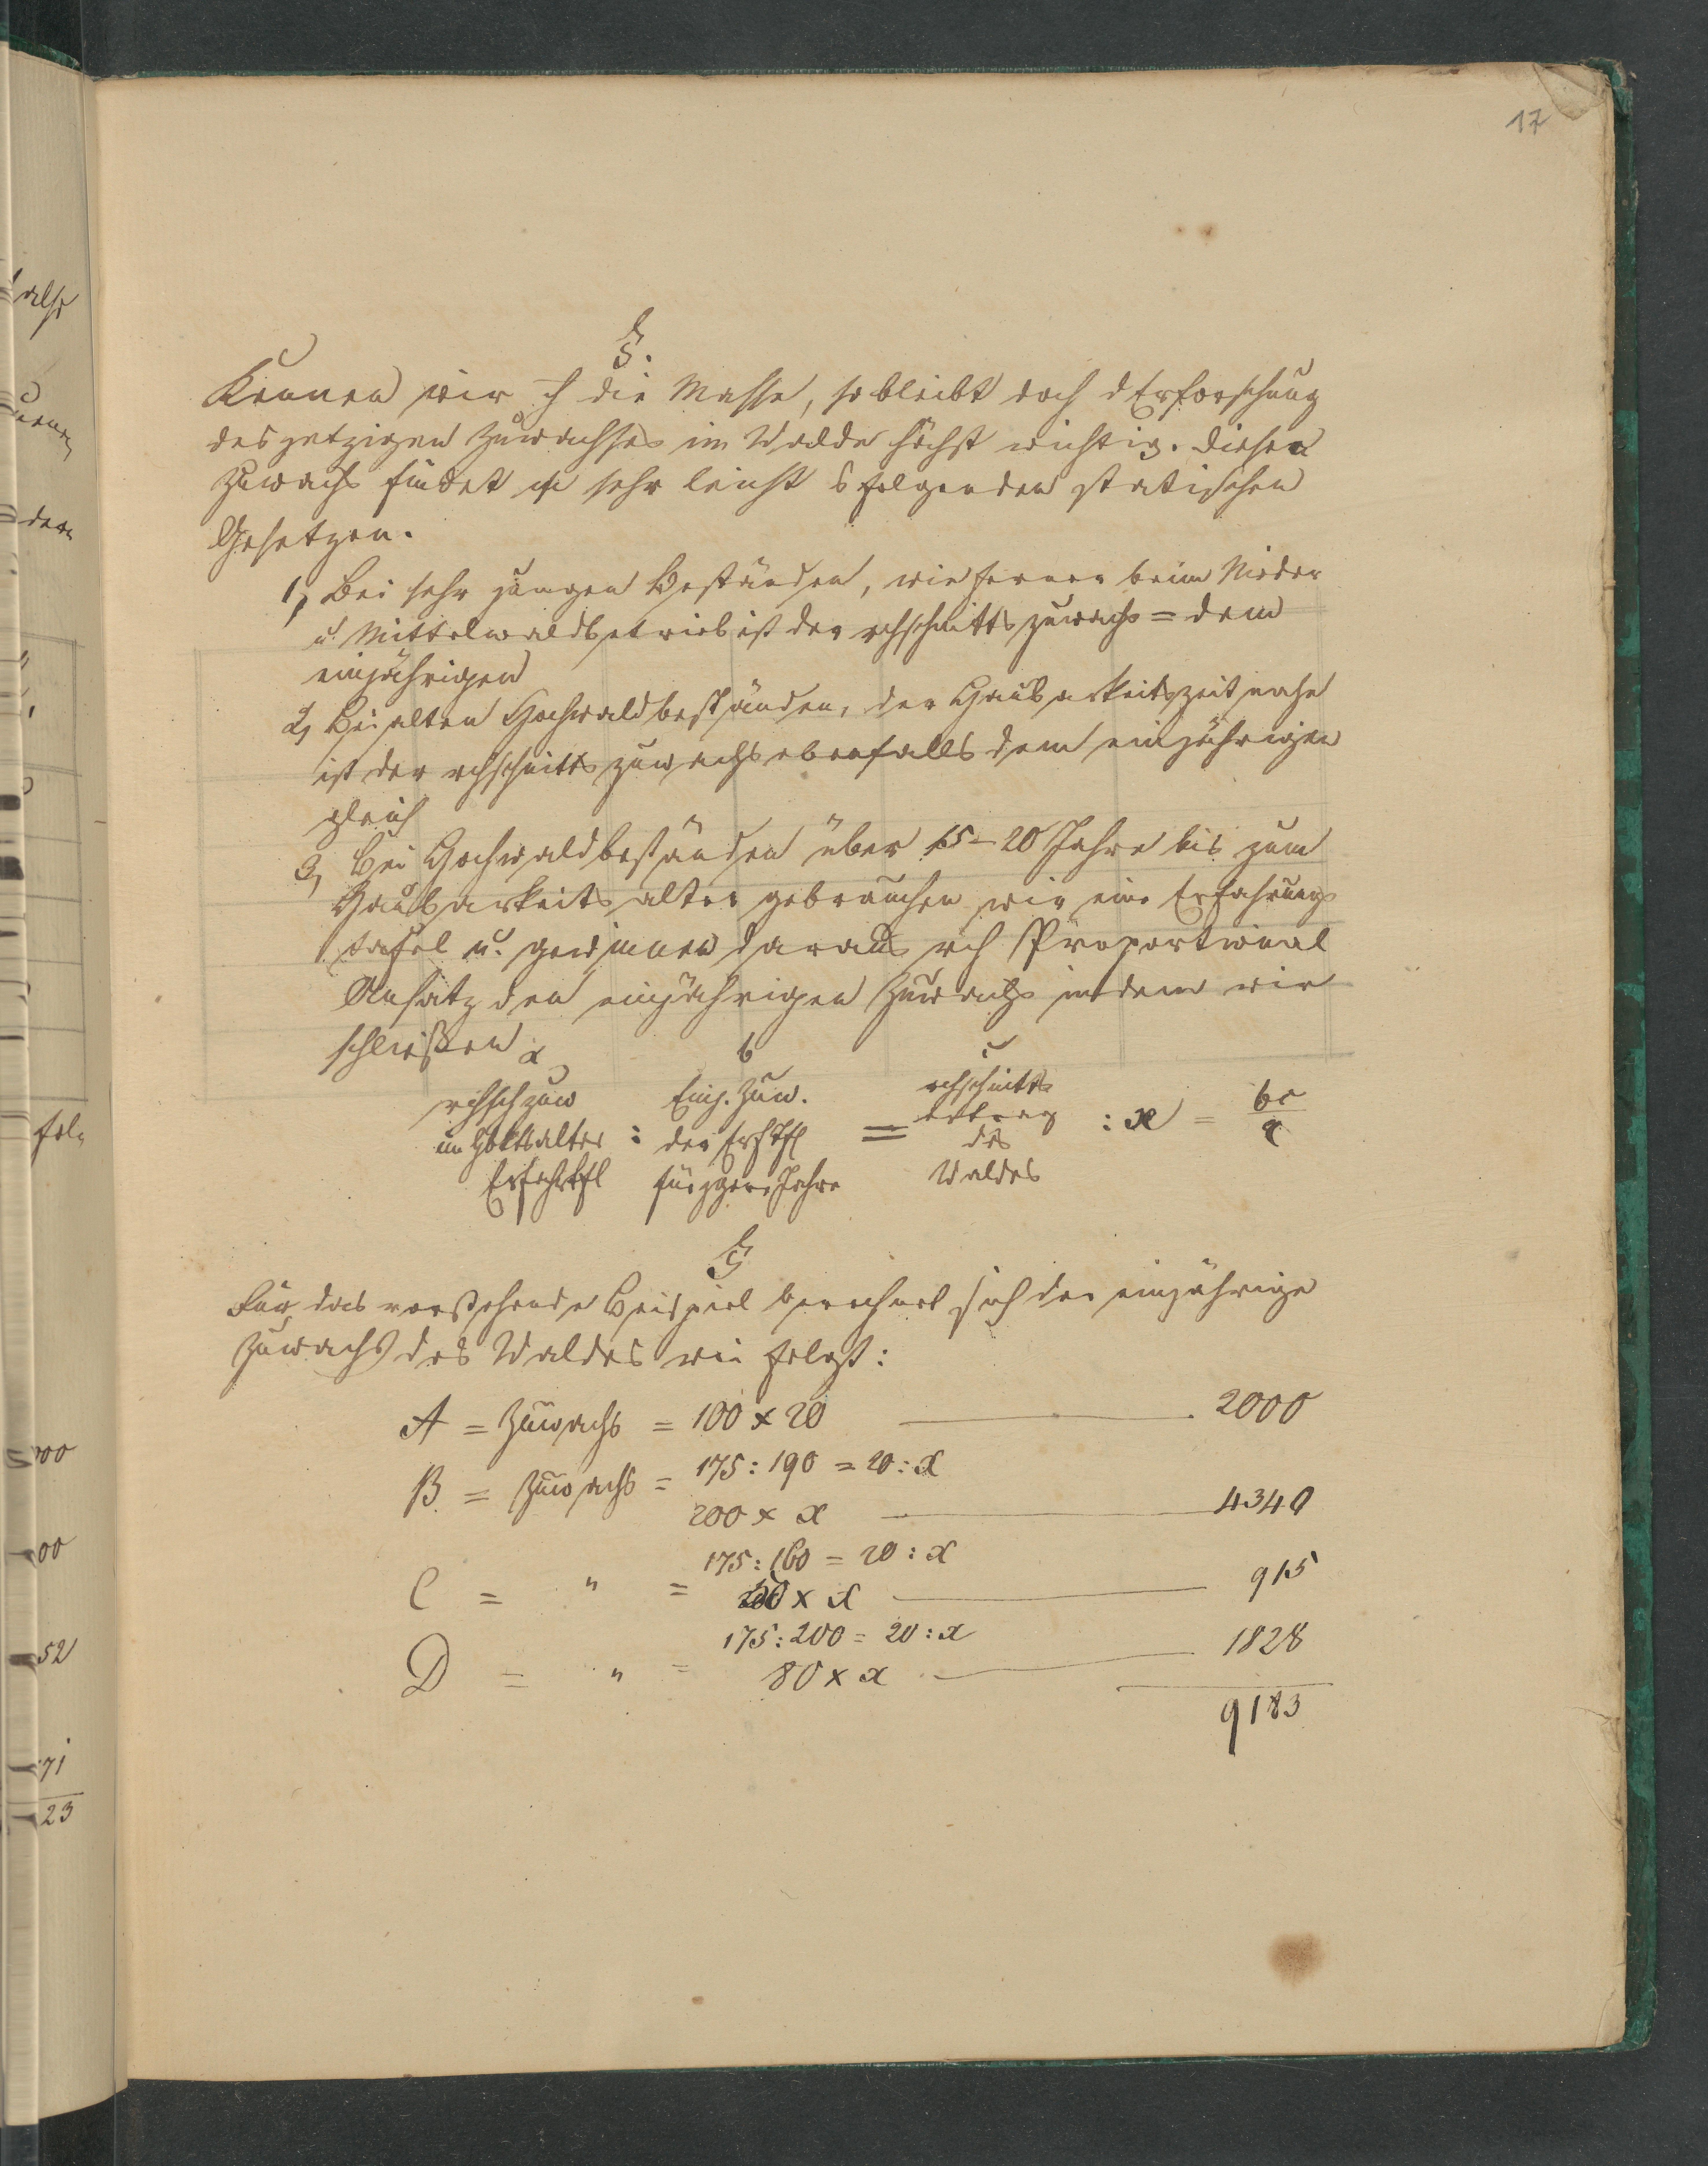 17
§.
Kennen wir die Masse, so bleibt doch d Erforschung
des jetzigen Zuwachses im Walde höchst wichtig. Diesen
Zuwachs findet sehr leicht folgenden statischen
Gesetzen.
1, Bei sehr jungen Beständen, wie ferner beim Nieder
u. Mittelwaldbetrieb ist der rchschnittszuwachs = dem
einjährigen
2, Bei alten Hochwaldbeständen, der Haubarkeitszeit nahe
ist der rchschnittszuwachs ebenfalls dem einjährigen
gleich
3, Bei Hochwaldbeständen über 15 – 20 Jahre bis zum
Haubarkeitsalter gebrauchen wir eine Erfahrungs
tafel u. gewinnen daraus rch Proportional
Ansatz den einjährigen Zuwachs indem wir
schließen
a b c
rchschzuw Einj. Zuw. rchschnitts
im Hbktsalter : der Erfhtfl = ertrag : x = bc/a
des
Erfahrtfl für Jahre Waldes
§
Für das vorstehende Beispiel berechnet sich der einjährige
Zuwachs des Waldes wie folgt:
A = Zuwachs = 100 x 20 — 2000
B = Zuwachs = 175 : 190 = 20 : x
200 x x — 4340
175 : 160 = 20 : x
C = " = 50 x x — 915
175 : 200 = 20 : x
D = " = 80 x x — 1828
9183